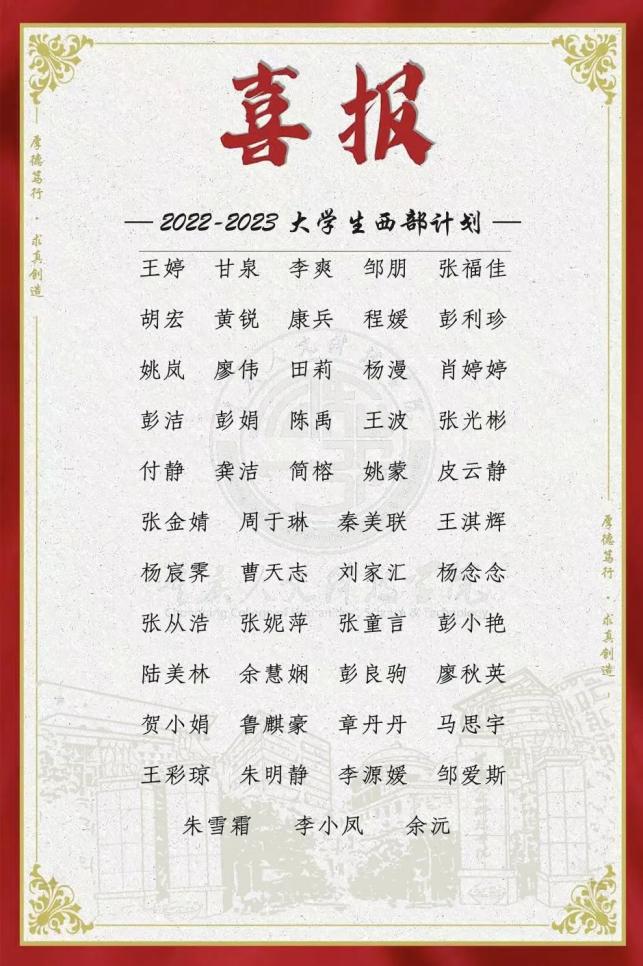 喜报
厚德笃行·求真创造
— 2022-2023 大学生西部计划 —
王婷 甘泉 李爽 邹朋 张福佳
胡宏 黄锐 康兵 程媛 彭利珍
姚岚 廖伟 田莉 杨漫 肖婷婷
彭洁 彭娟 陈禹 王波 张光彬
付静 龚洁 简榕 姚蒙 皮云静
张金婧 周于琳 秦美联 王淇辉
杨宸霁 曹天志 刘家汇 杨念念
张从浩 张妮萍 张童言 彭小艳
陆美林 余慧娴 彭良驹 廖秋英
贺小娟 鲁麒豪 章丹丹 马思宇
王彩琼 朱明静 李源媛 邹爱斯
朱雪霜 李小凤 余沅
厚德笃行·求真创造